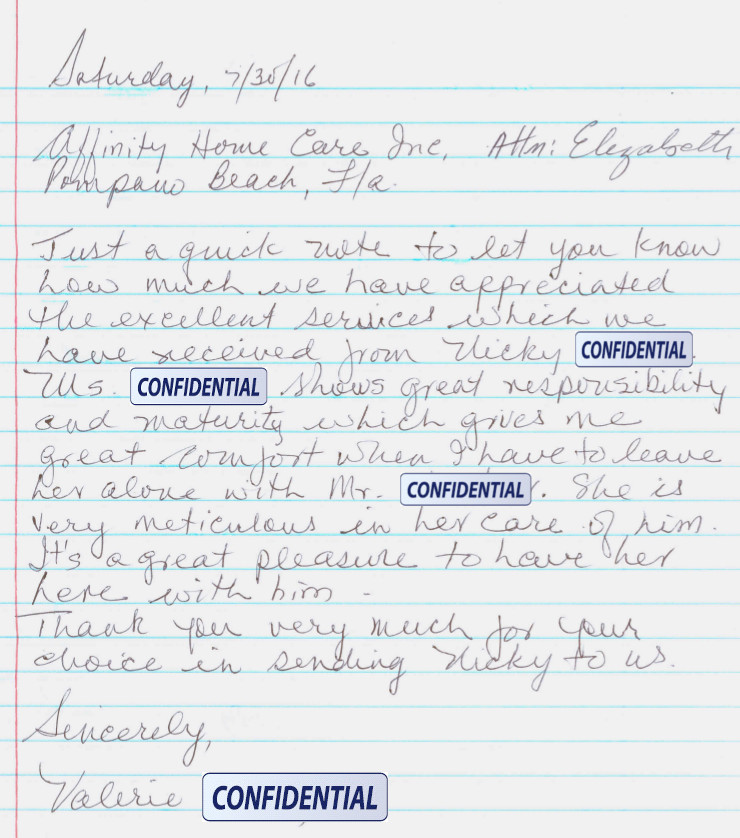 Saturday, 7/30/16
Affinity Home Care Inc, Attn: Elizabeth
Pompano Beach, Fla.
Just a quick note to let you know
how much we have appreciated
the excellent services which we
have received from Nicky CONFIDENTIAL.
Ms. CONFIDENTIAL shows great responsibility
and maturity which gives me
great comfort when I have to leave
her alone with Mr. CONFIDENTIAL. She is
very meticulous in her care of him.
It's a great pleasure to have her
here with him -
Thank you very much for your
choice in sending Nicky to us.
Sincerely,
Valerie CONFIDENTIAL